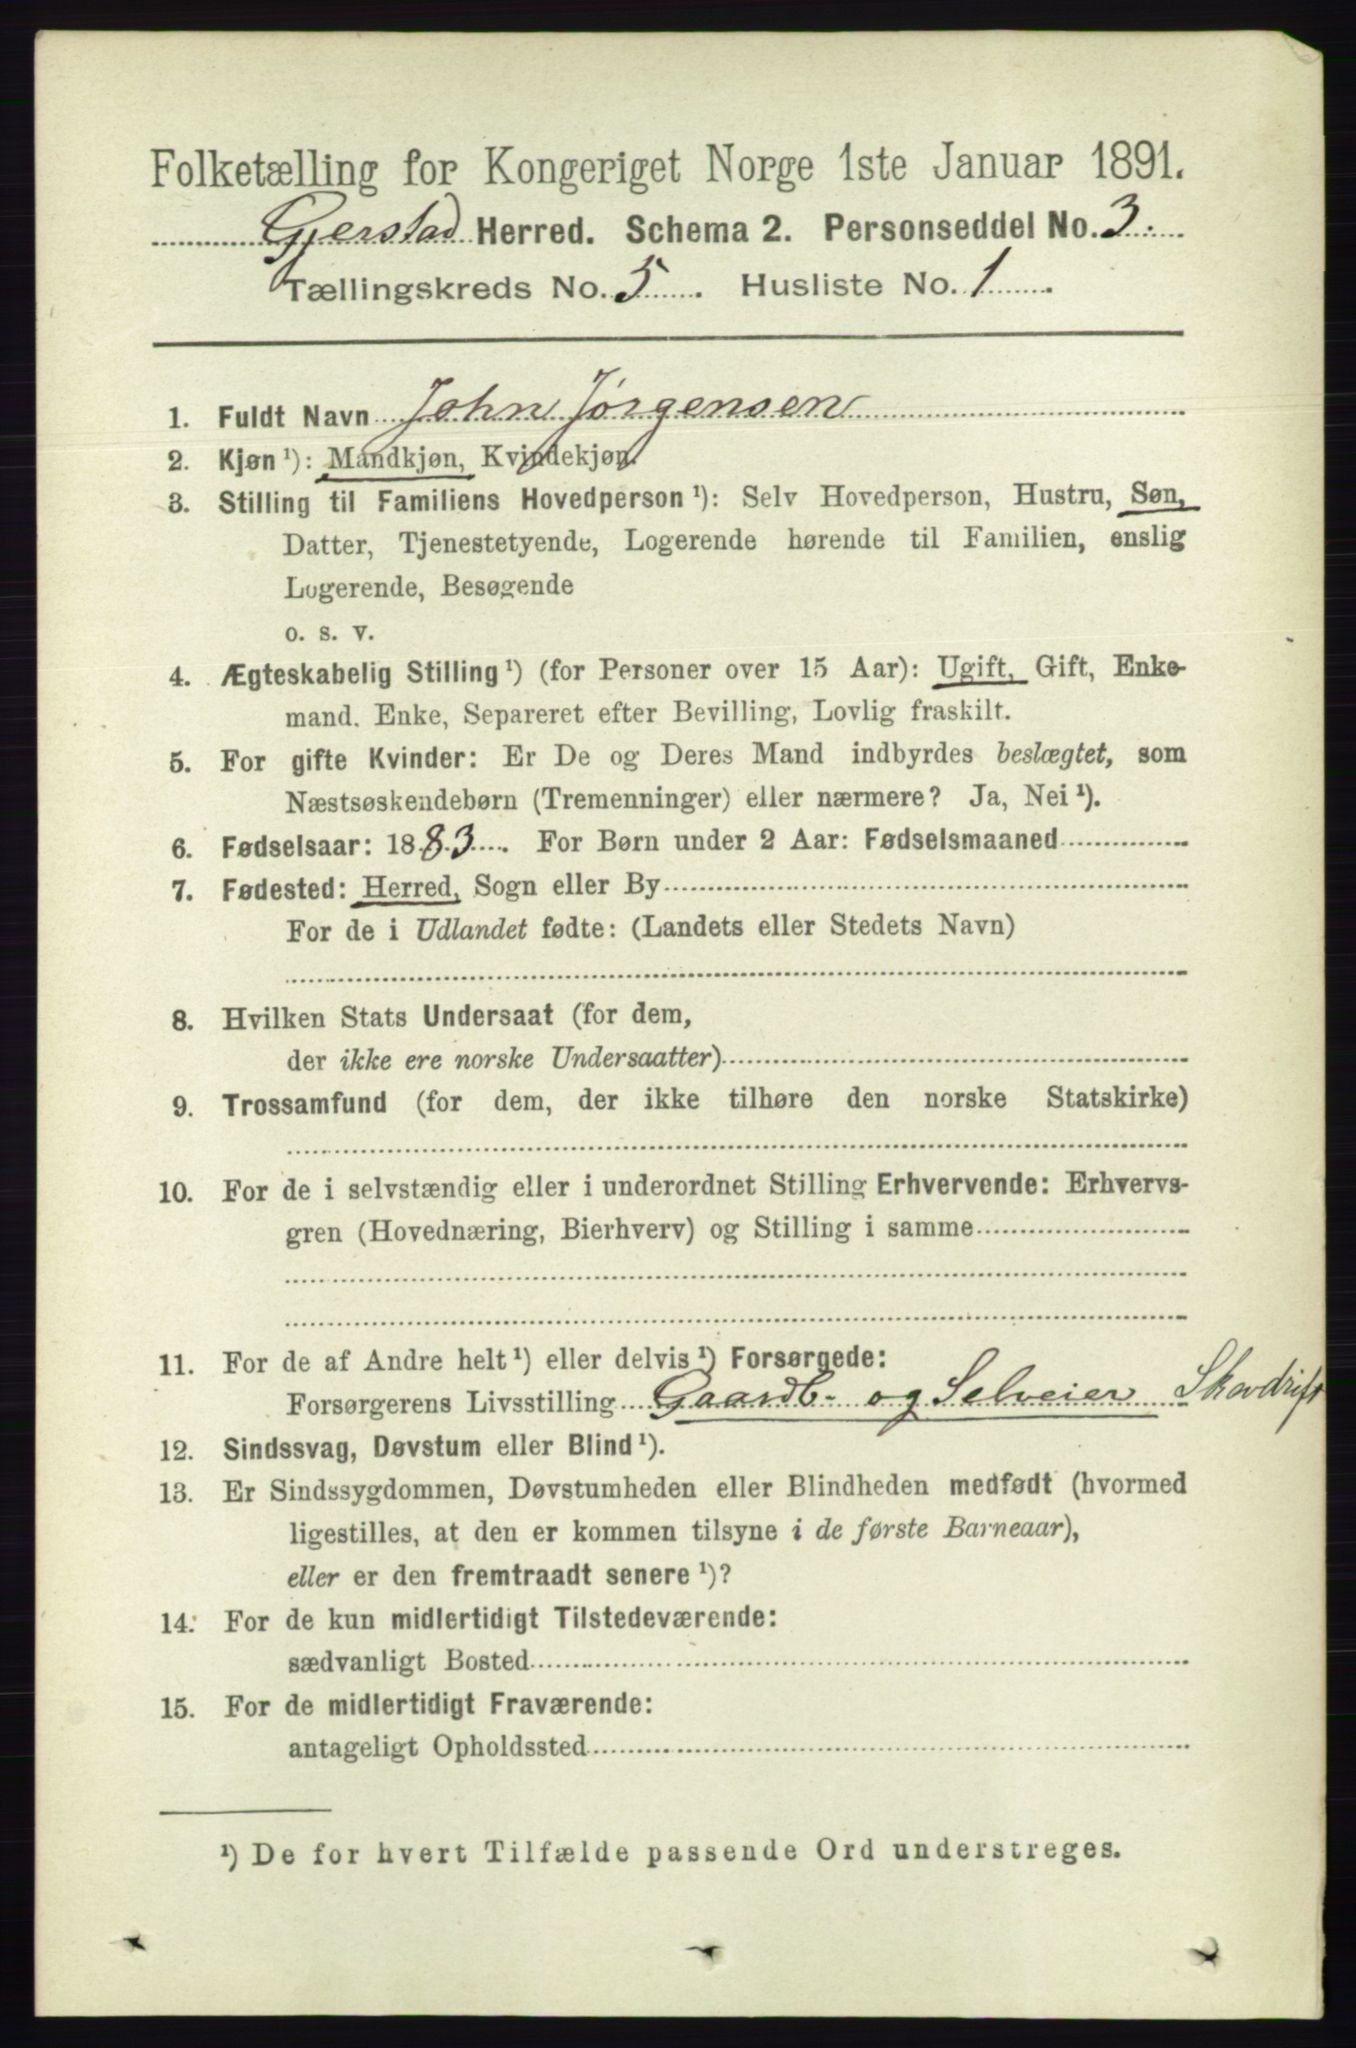 Folketælling for Kongeriget Norge 1ste Januar 1891.
Gjerstad Herred. Schema 2. Personseddel No. 3.
Tællingskreds No. 5. Husliste No. 1
1. Fuldt Navn John Jørgensen
2. Kjøn ¹): Mandkjøn, Kvindekjøn.
3. Stilling til Familiens Hovedperson ¹): Selv Hovedperson, Hustru, Søn,
Datter, Tjenestetyende, Logerende hørende til Familien, enslig
Logerende, Besøgende
o. s. v.
4. Ægteskabelig Stilling ¹) (for Personer over 15 Aar): Ugift, Gift, Enke-
mand. Enke, Separeret efter Bevilling, Lovlig fraskilt.
5. For gifte Kvinder: Er De og Deres Mand indbyrdes beslægtet, som
Næstsøskendebørn (Tremenninger) eller nærmere? Ja, Nei ¹).
6. Fødselsaar: 1883. For Børn under 2 Aar: Fødselsmaaned
7. Fødested: Herred, Sogn eller By
For de i Udlandet fødte: (Landets eller Stedets Navn)
8. Hvilken Stats Undersaat (for dem,
der ikke ere norske Undersaatter)
9. Trossamfund (for dem, der ikke tilhøre den norske Statskirke)
10. For de i selvstændig eller i underordnet Stilling Erhvervende: Erhvervs-
gren (Hovednæring, Bierhverv) og Stilling i samme
11. For de af Andre helt ¹) eller delvis ¹) Forsørgede:
Forsørgerens Livsstilling Gaardb- og Selveier Skovdrift
12. Sindssvag, Døvstum eller Blind ¹).
13. Er Sindssygdommen, Døvstumheden eller Blindheden medfødt (hvormed
ligestilles, at den er kommen tilsyne i de første Barneaar),
eller er den fremtraadt senere ¹)?
14. For de kun midlertidigt Tilstedeværende:
sædvanligt Bosted
15. For de midlertidigt Fraværende:
antageligt Opholdssted
¹) De for hvert Tilfælde passende Ord understreges.